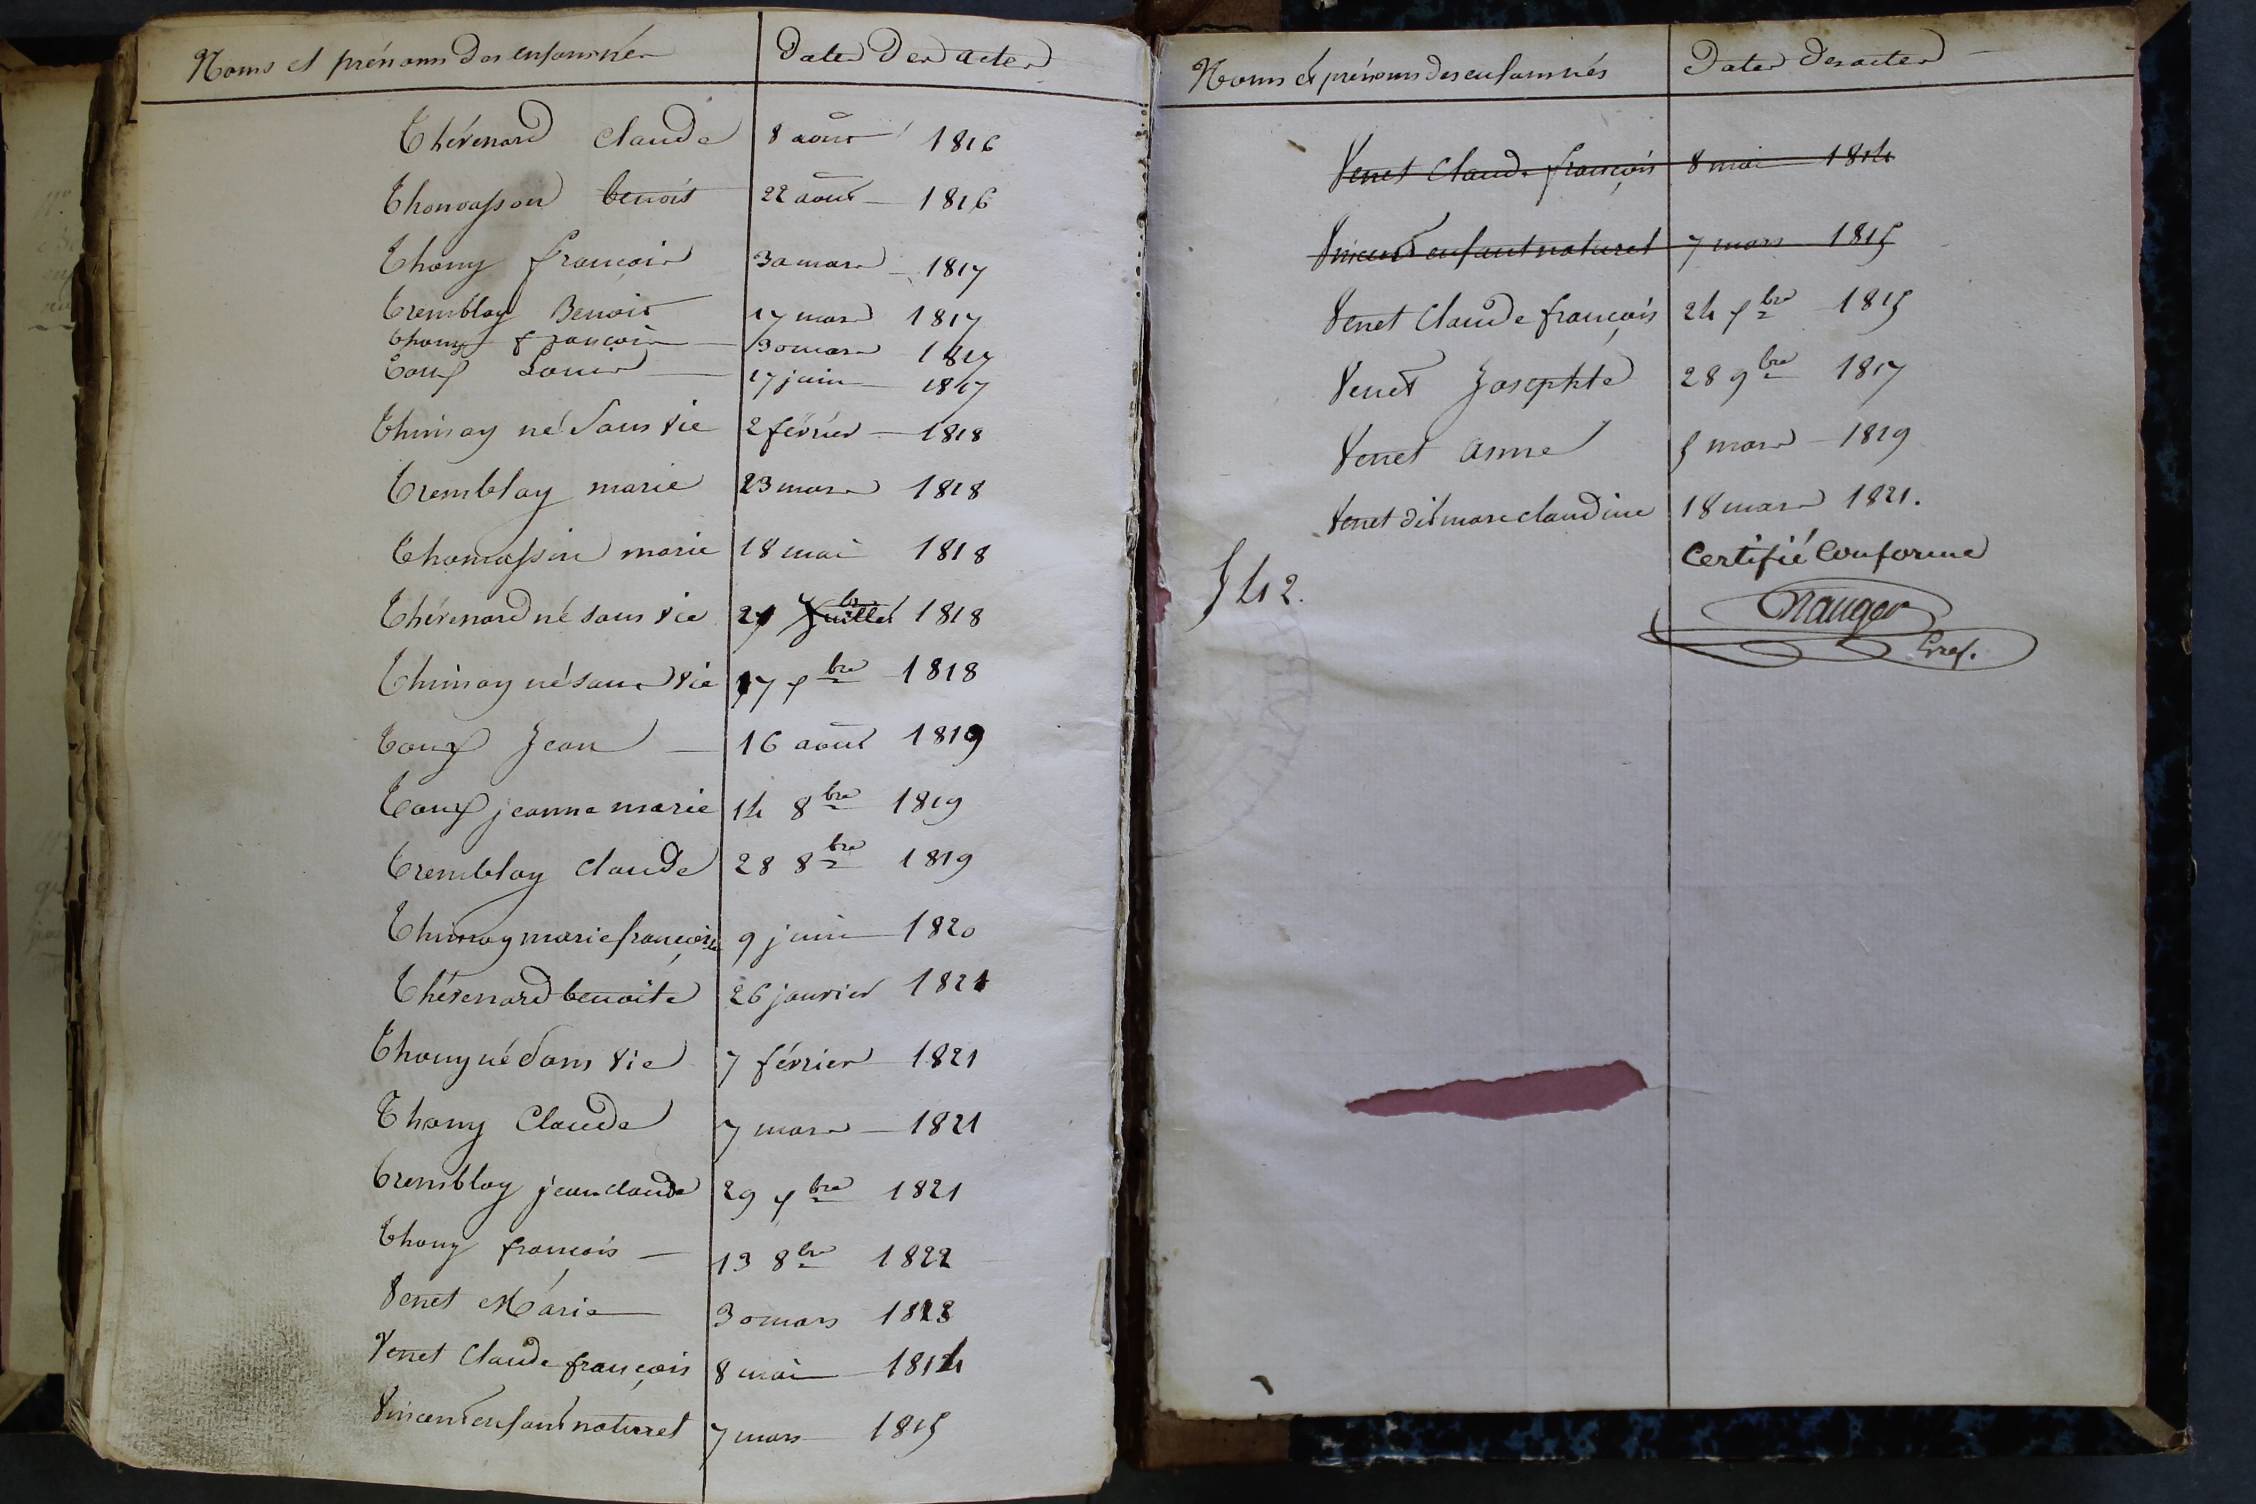 Noms et prénoms des enfans nés
Dates Des actes
Thévenard Claude 8 aout 1816
Thomasson benoit 22 aout 1816
Thony françois 30 mars 1817
Tremblay Benoit 17 mars 1817
Thony françois 30 mars 1817
Toux Louis 17 juin 1817
Thimoy né sans vie 2 février 1818
Tremblay marie 23 mars 1818
Thomassin marie 18 mai 1818
Thévenard né sans vie 1818
Thimoy né sans vie 17 7bre 1818
Toux Jean 16 août 1819
Toux jeanne marie 14 8bre 1819
Tremblay claude 28 8bre 1819
Thimoy marie françoise 9 juin 1820
Thévenard benoite 26 janvier 1821
Thony né sans vie 7 février 1821
Thony Claude 7 mars 1821
Tremblay jean claude 29 7bre 1821
Thony françois 13 8bre 1822
Venet Marie 30 mars 1813
Venet Claude françois 8 mai 1814
Vincent enfant naturel 7 mars 1815
Noms et prénoms des enfans nés
Dates des actes
Venet Claude françois 8 mai 1814
Vincent enfant naturel 7 mars 1815
Venet Claude françois 24 7bre 1815
Venet Josephte 28 9bre 1817
Venet anne 5 mars 1819
Venet dit mare claudine 18 mars 1821.
Certifié Conforme
542.
Gref.